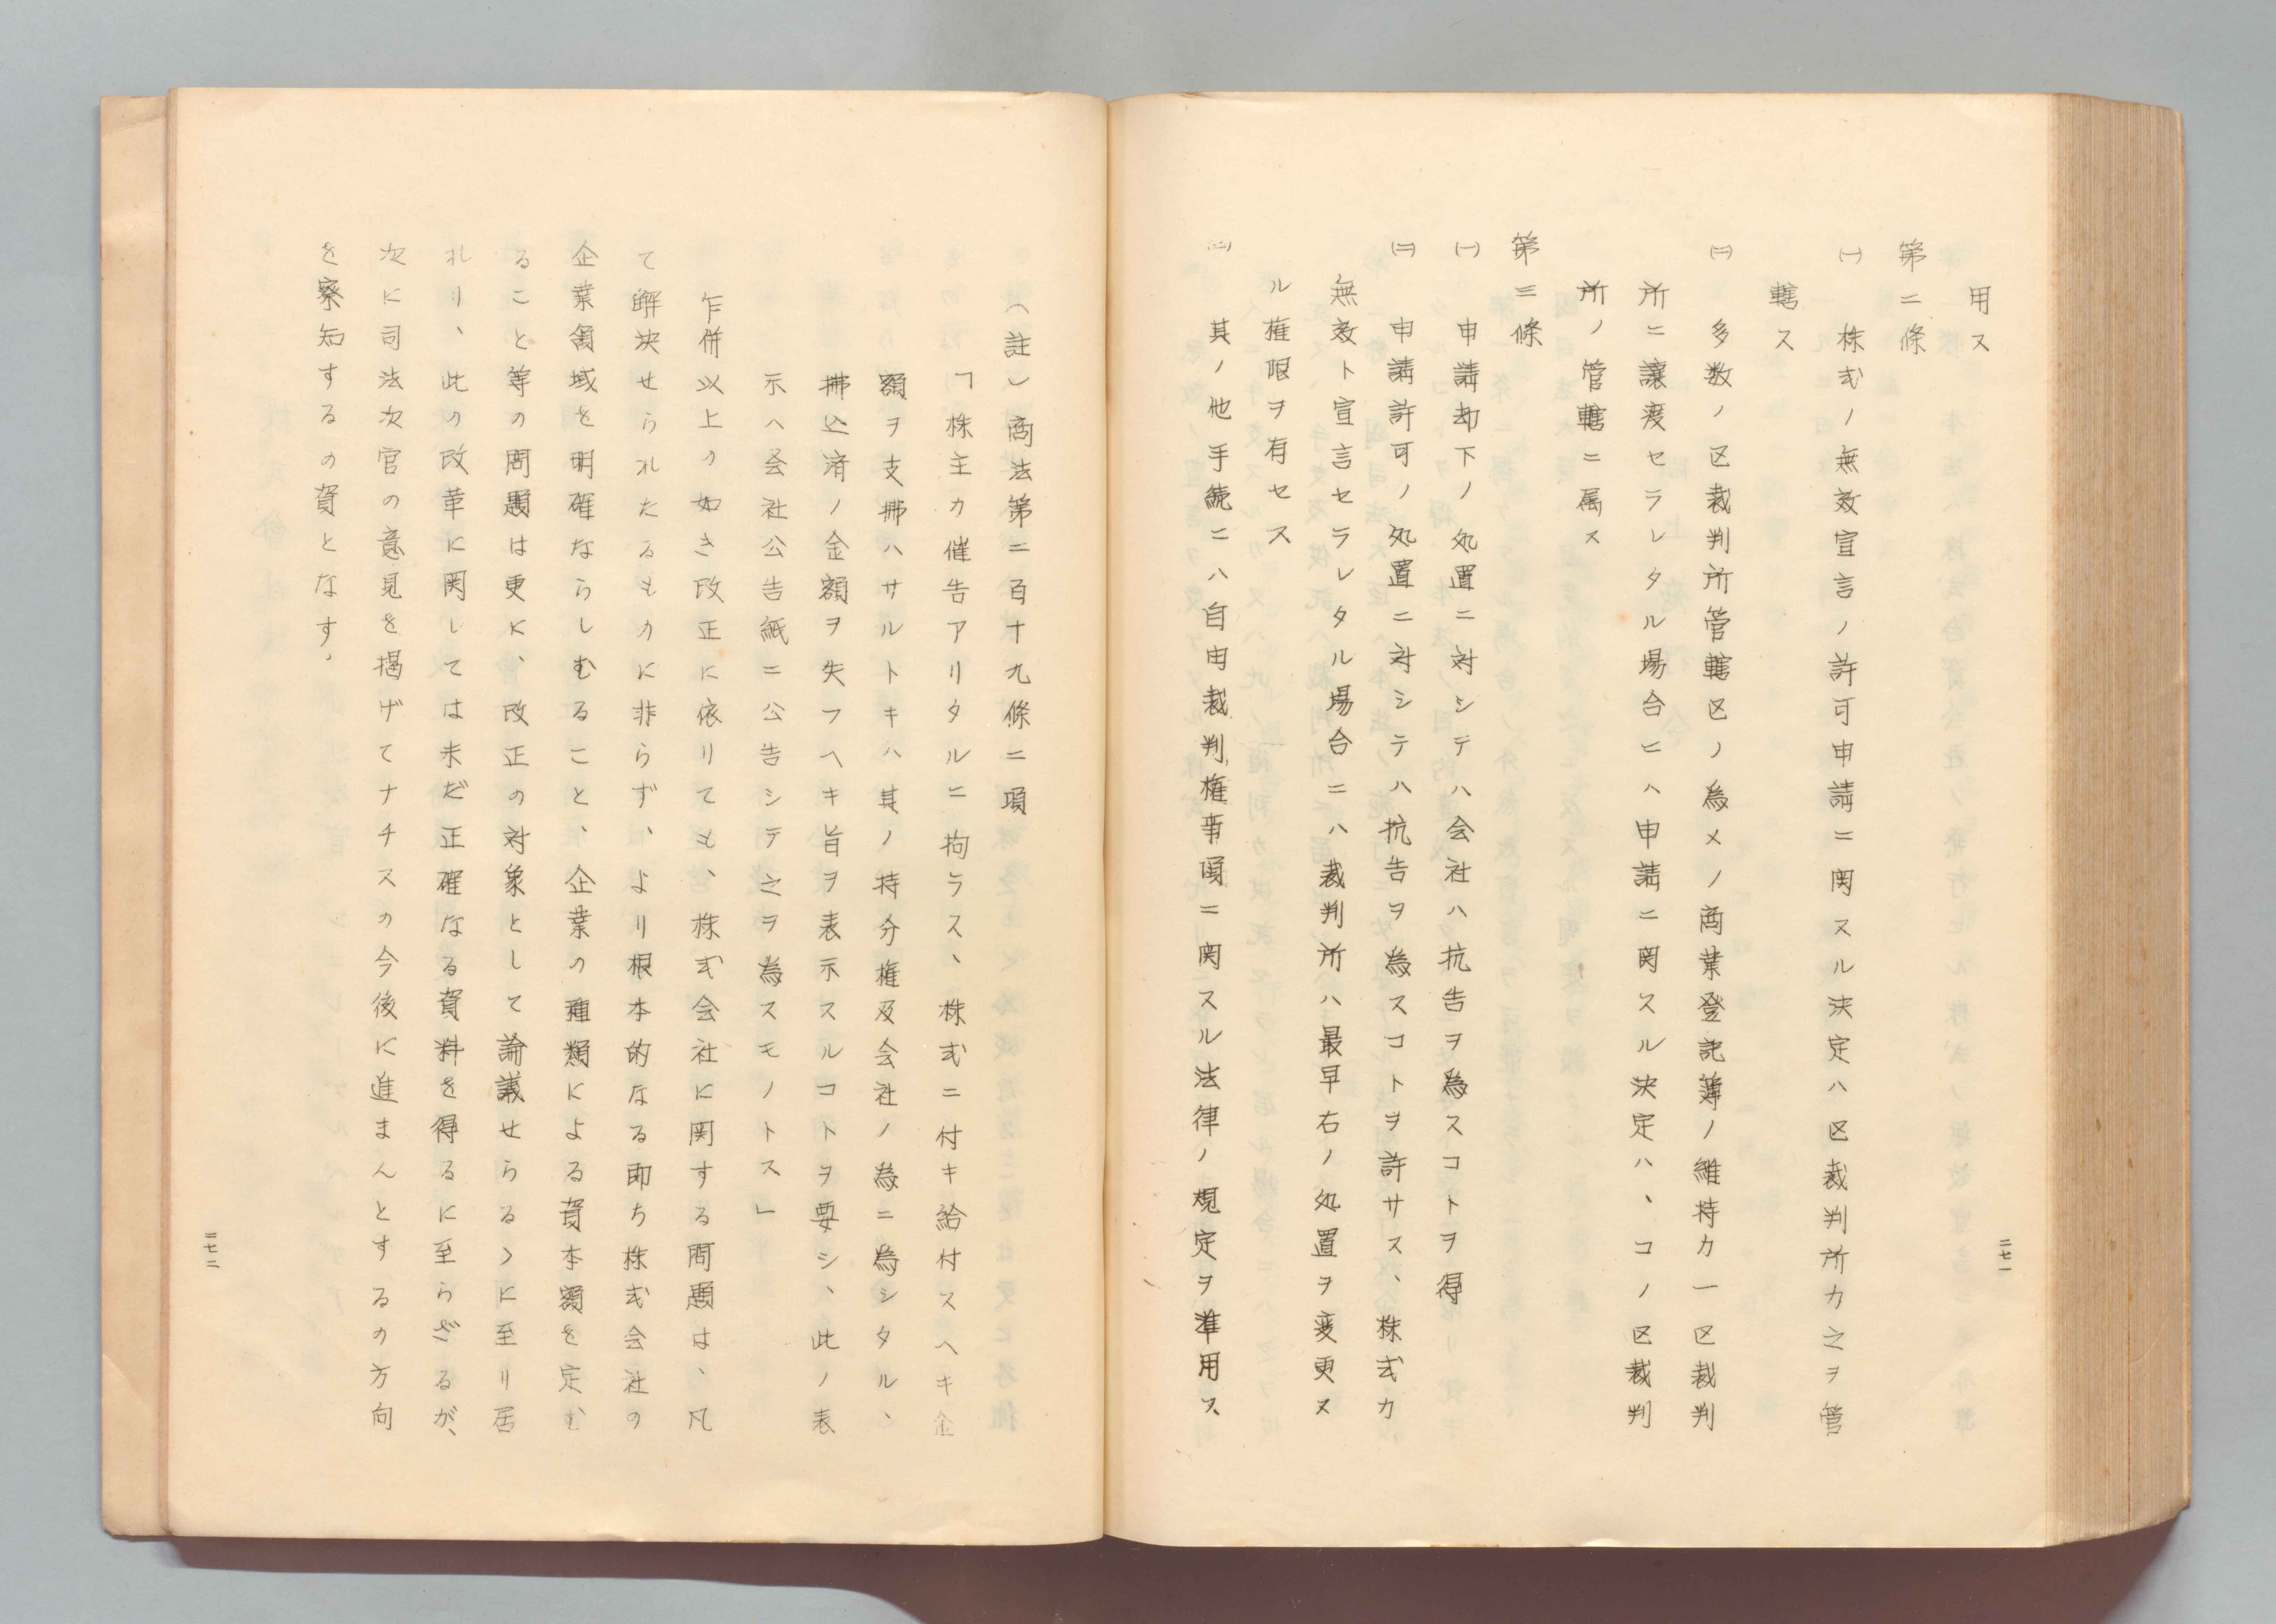 用ス
第二條
㈠ 株式ノ無效宣言ノ許可申請ニ関スル決定ハ区裁判所カ之ヲ管
轄ス
㈡ 多数ノ区裁判所管轄区ノ為メノ商業登記簿ノ維持カ一区裁判
所ニ譲渡セラレタル場合ニハ申請ニ関スル決定ハ、コノ区裁判
所ノ管轄ニ属ス
第三條
㈠ 申請却下ノ処置ニ対シテハ会社ハ抗告ヲ為スコトヲ得
㈡ 申請許可ノ処置ニ対シテハ抗告ヲ為スコトヲ許サス、株式カ
無效ト宣言セラレタル場合ニハ裁判所ハ最早右ノ処置ヲ変更ス
ル権限ヲ有セス
其ノ他手続ニハ自由裁判権事項ニ関スル法律ノ規定ヲ準用ス
二七一
（註）商法第二百十九條二項
「株主カ催告アリタルニ拘ラス、株式ニ付キ給付スヘキ金
額ヲ支拂ハサルトキハ其ノ持分権及会社ノ為ニ為シタル、
拂込済ノ金額ヲ失フヘキ旨ヲ表示スルコトヲ要シ、此ノ表
示ヘ会社公告紙ニ公告シテ之ヲ為スモノトス」
乍併以上の如き改正に依りても、株式会社に関する問題は、凡
て解決せられたるものに非らず、より根本的なる即ち株式会社の
企業領域を明確ならしむること、企業の種類による資本額を定む
ること等の問題は更に、改正の対象として論議せらるゝに至り居
れり、此の改革に関しては未だ正確なる資料を得るに至らざるが、
次に司法次官の意見を掲げてナチスの今後に進まんとするの方向
を察知するの資となす、
二七二